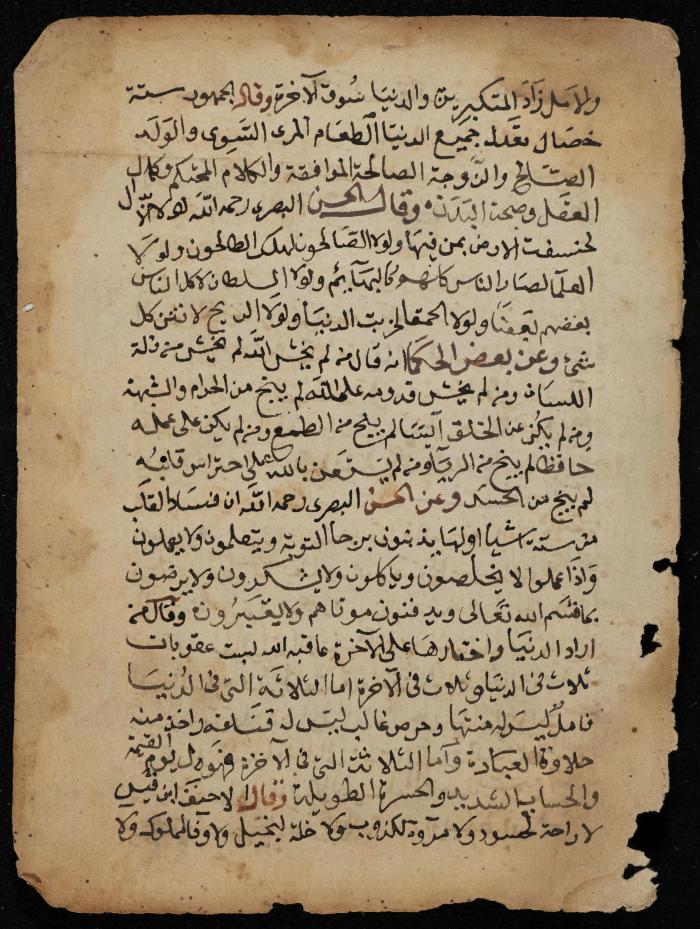 والامل زاد المتكبرين والدنيا سوق الآخرة وقال الجمهور ستة
خصال تعدل جميع الدنيا الطعام المرى السوى والولد
الصالح والزوجة الصالحة الموافقة والكلام المحكم وكمال
العقل وصحة البدن وقال الحسن البصرى رحمه الله لولا
لخسفت الارض بمن فيها ولولا الصالحون لهلك الطالحون ولولا
العلما لصار الناس كلهم كالبهايم ولولا السلطان لاكل الناس
بعضهم بعضا ولولا الحمقا لخربت الدنيا ولولا الريح لانتن كل
شئ وعن بعض الحكما انه قال من لم يخش الله لم من زلة
اللسان ومن لم يخش قدومه على الله لم ينج من الحرام والشبهة
ومن لم يكن عن الخلق آيسا لم ينج من الطمع ومن لم يكن على عمله
حافظا لم ينج من الريآ ومن لم يستعن بالله على احتراس قلبه
لم ينج من الحسد وعن الحسن البصرى رحمه الله ان فساد القلب
من ستة اشيا اولها يذنبون برجا التوبة ويتعلمون ولا يعملون
واذا عملوا لا يخلصون وياكلون ولا يشكرون ولا يرضون
بما قسم الله تعالى ويدفنون موتاهم ولا يعتبرون وقال من
اراد الدنيا واختارها على الآخرة عاقبه الله لبست عقوبات
ثلاث فى الدنيا وثلاث فى الآخرة اما الثلاثة التى فى الدنيا
فامل ليس له منتها وحرص غالب ليس له قناعة واخذ منه
حلاوة العبادة وآما الثلاثة التى فى الآخرة فهول يوم القيمة
والحساب الشديد والحسرة الطويلة وقال الاحنف ابن قيس
لا راحة لحسود ولا مروة لكذوب ولا خلة لبخيل ولا وفا لملوك ولا